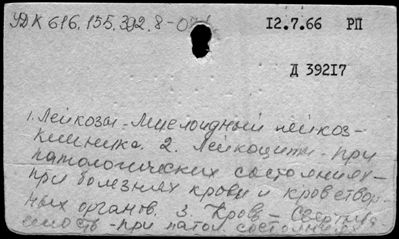 УДК 616.155.392.8-0
12.7.66 РП
Д 39217
1. Лейкозы - Миелоидный лейкоз -
клиника. 2. Лейкоциты - при
патологических состояниях -
при болезнях крови и кроветвор-
ных органов. 3. Кровь - Сверты
емость - при патол. состояниях